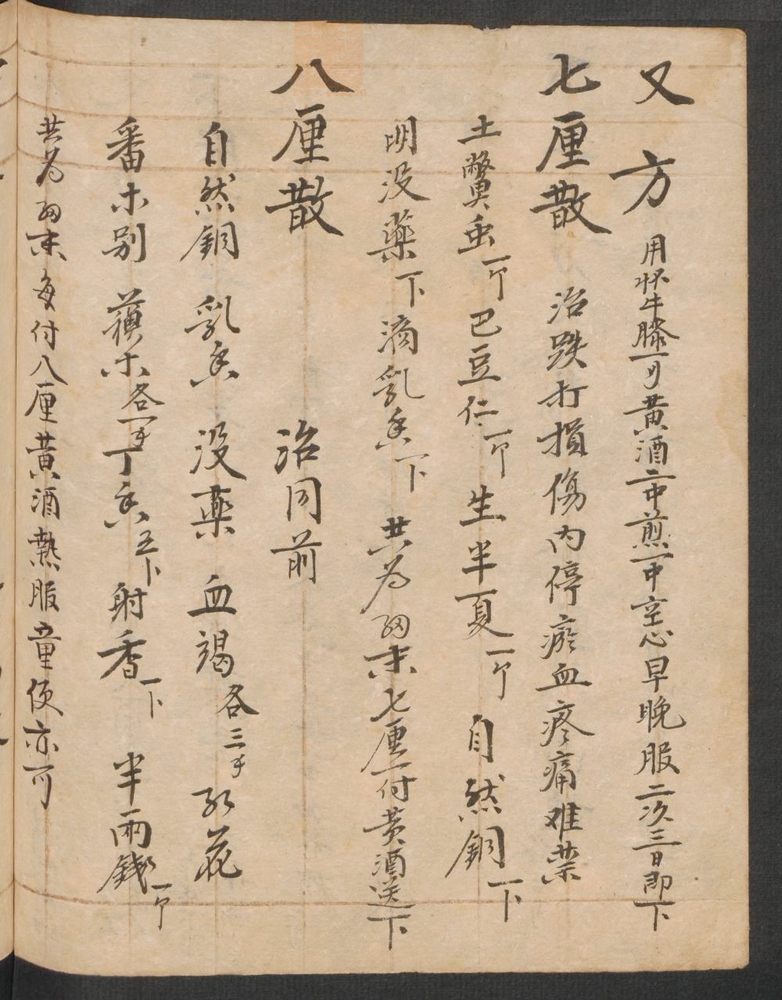 又方 用怀牛膝一可黄酒二中煎一中空心早晚服二次三日即下
七厘散 治跌打損傷内停瘀血疼痛难禁
土鱉虫一 巴豆仁一 生半夏一 自然銅一下
明没藥一下 滴乳香一下 共為細末七厘一付黄酒送下
八厘散 治同前
自然銅 乳香 没藥 血竭各三 红花
番木别 蘓木各一 丁香五卜 射香一卜 半兩錢一
共為細末每付八厘黄酒熱服童便亦可